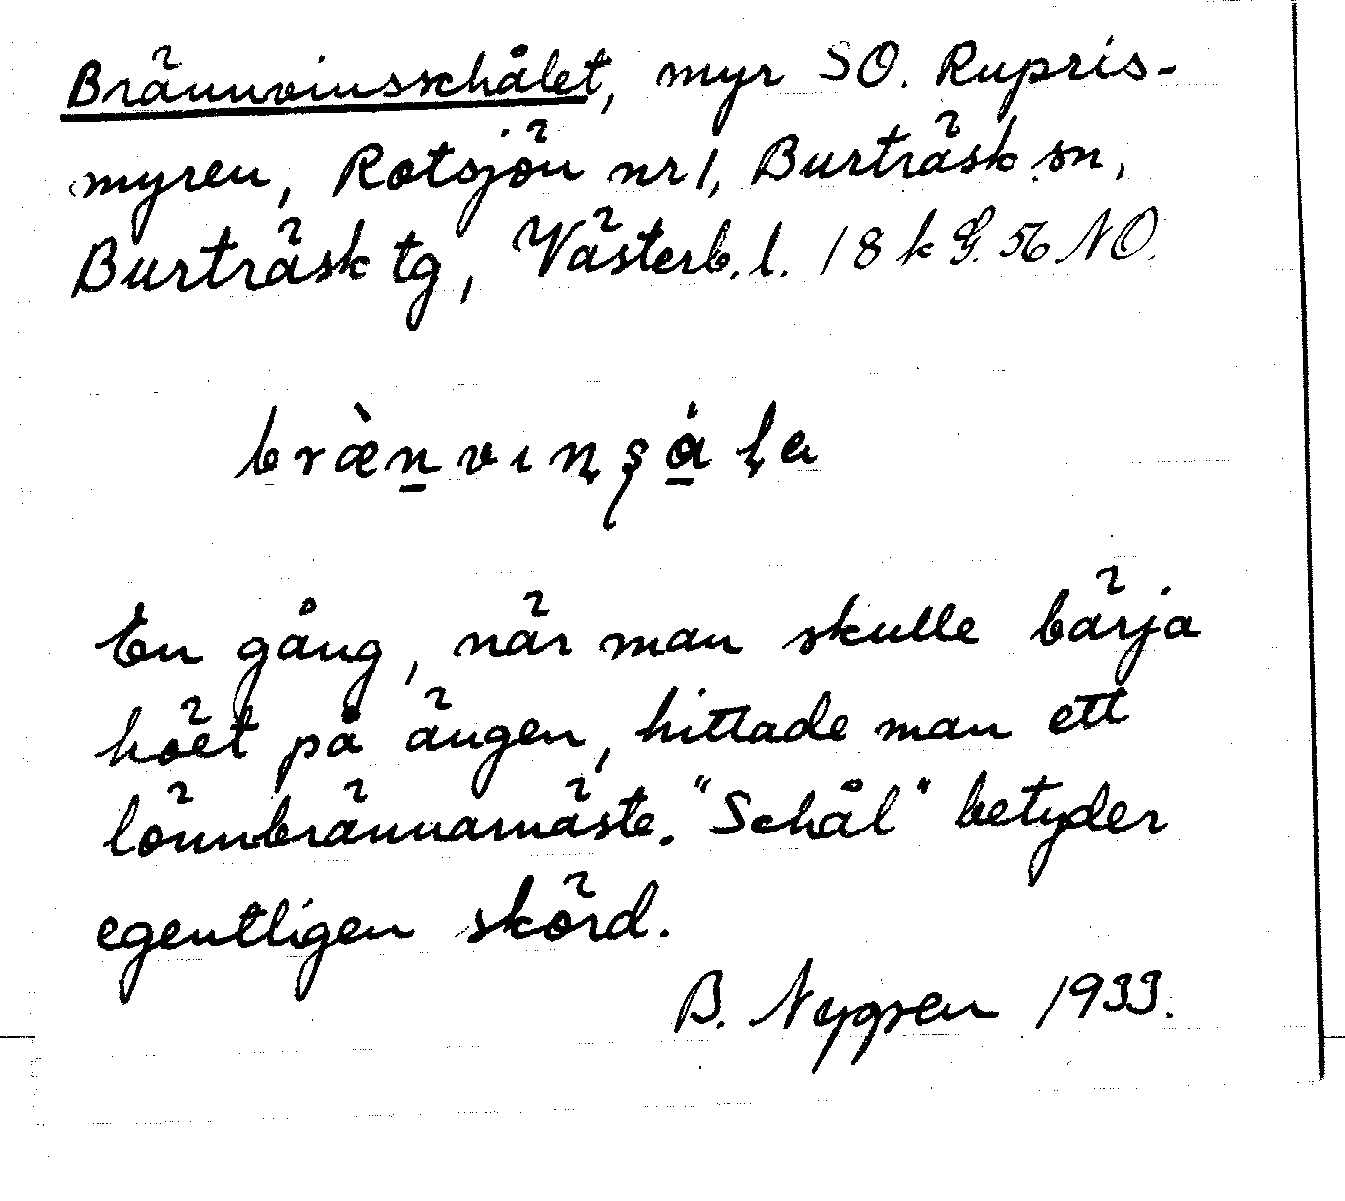 Brännvinsschålet, myr SO. Rupris-
myren, Rotsjön nr 1, Burträsk sn,
Burträsk tg, Västerb. l. 18 k G. 56 NO.
En gång, när man skulle bärja
höet på ängen, hittade man ett
lönnbrännarnäste. "Schål" betyder
egentligen skörd.
B. Nygren 1933.